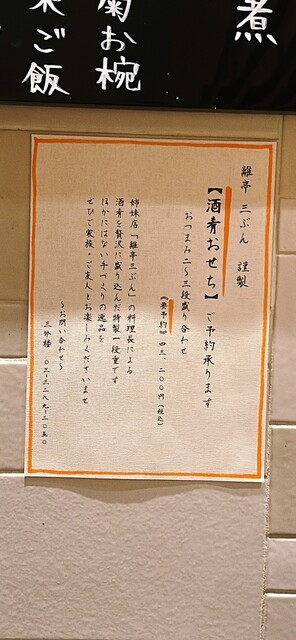 煮
菊お椀
ご飯
離亭 三ぶん 謹製
【酒肴おせち】ご予約承ります
おつまみ二〜三段盛り合わせ
《要予約》四三、二〇〇円(税込)
姉妹店「離亭三ぶん」の料理長による
酒肴を贅沢に盛り込んだ特製一段重です
ほかにはない手づくりの逸品を
ぜひご家族・ご友人とお楽しみくださいませ
〜お問い合わせ〜
三分楼 〇三-三二八九-二〇五〇